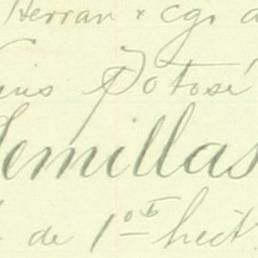 Herran & cg. a
Luis Potosí
Semillas
de 1º hect.